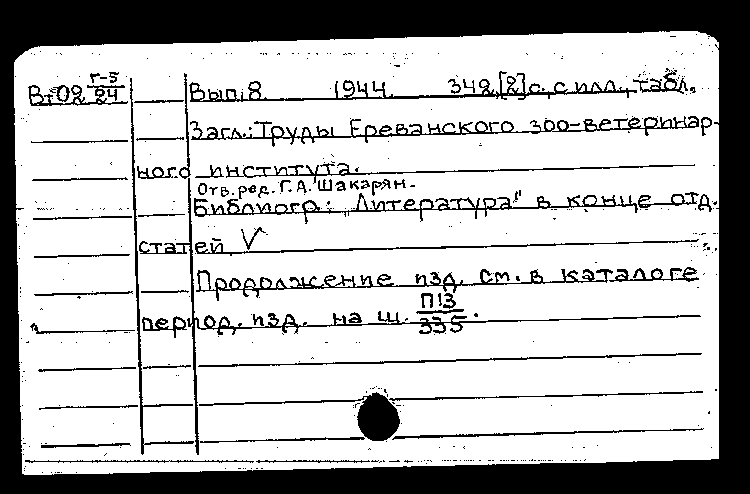 Вт02 Г-5/24 Вып. 8. 1944. 342,[2]с., с илл., табл.
Загл.: Труды Ереванского зоо-ветеринар-
ного института.
Отв. ред. Г.А. Шакарян.
Библиогр.: „Литература" в конце отд.
статей V
Продолжение изд. см. в каталоге
период. изд. на ш. П13/335.